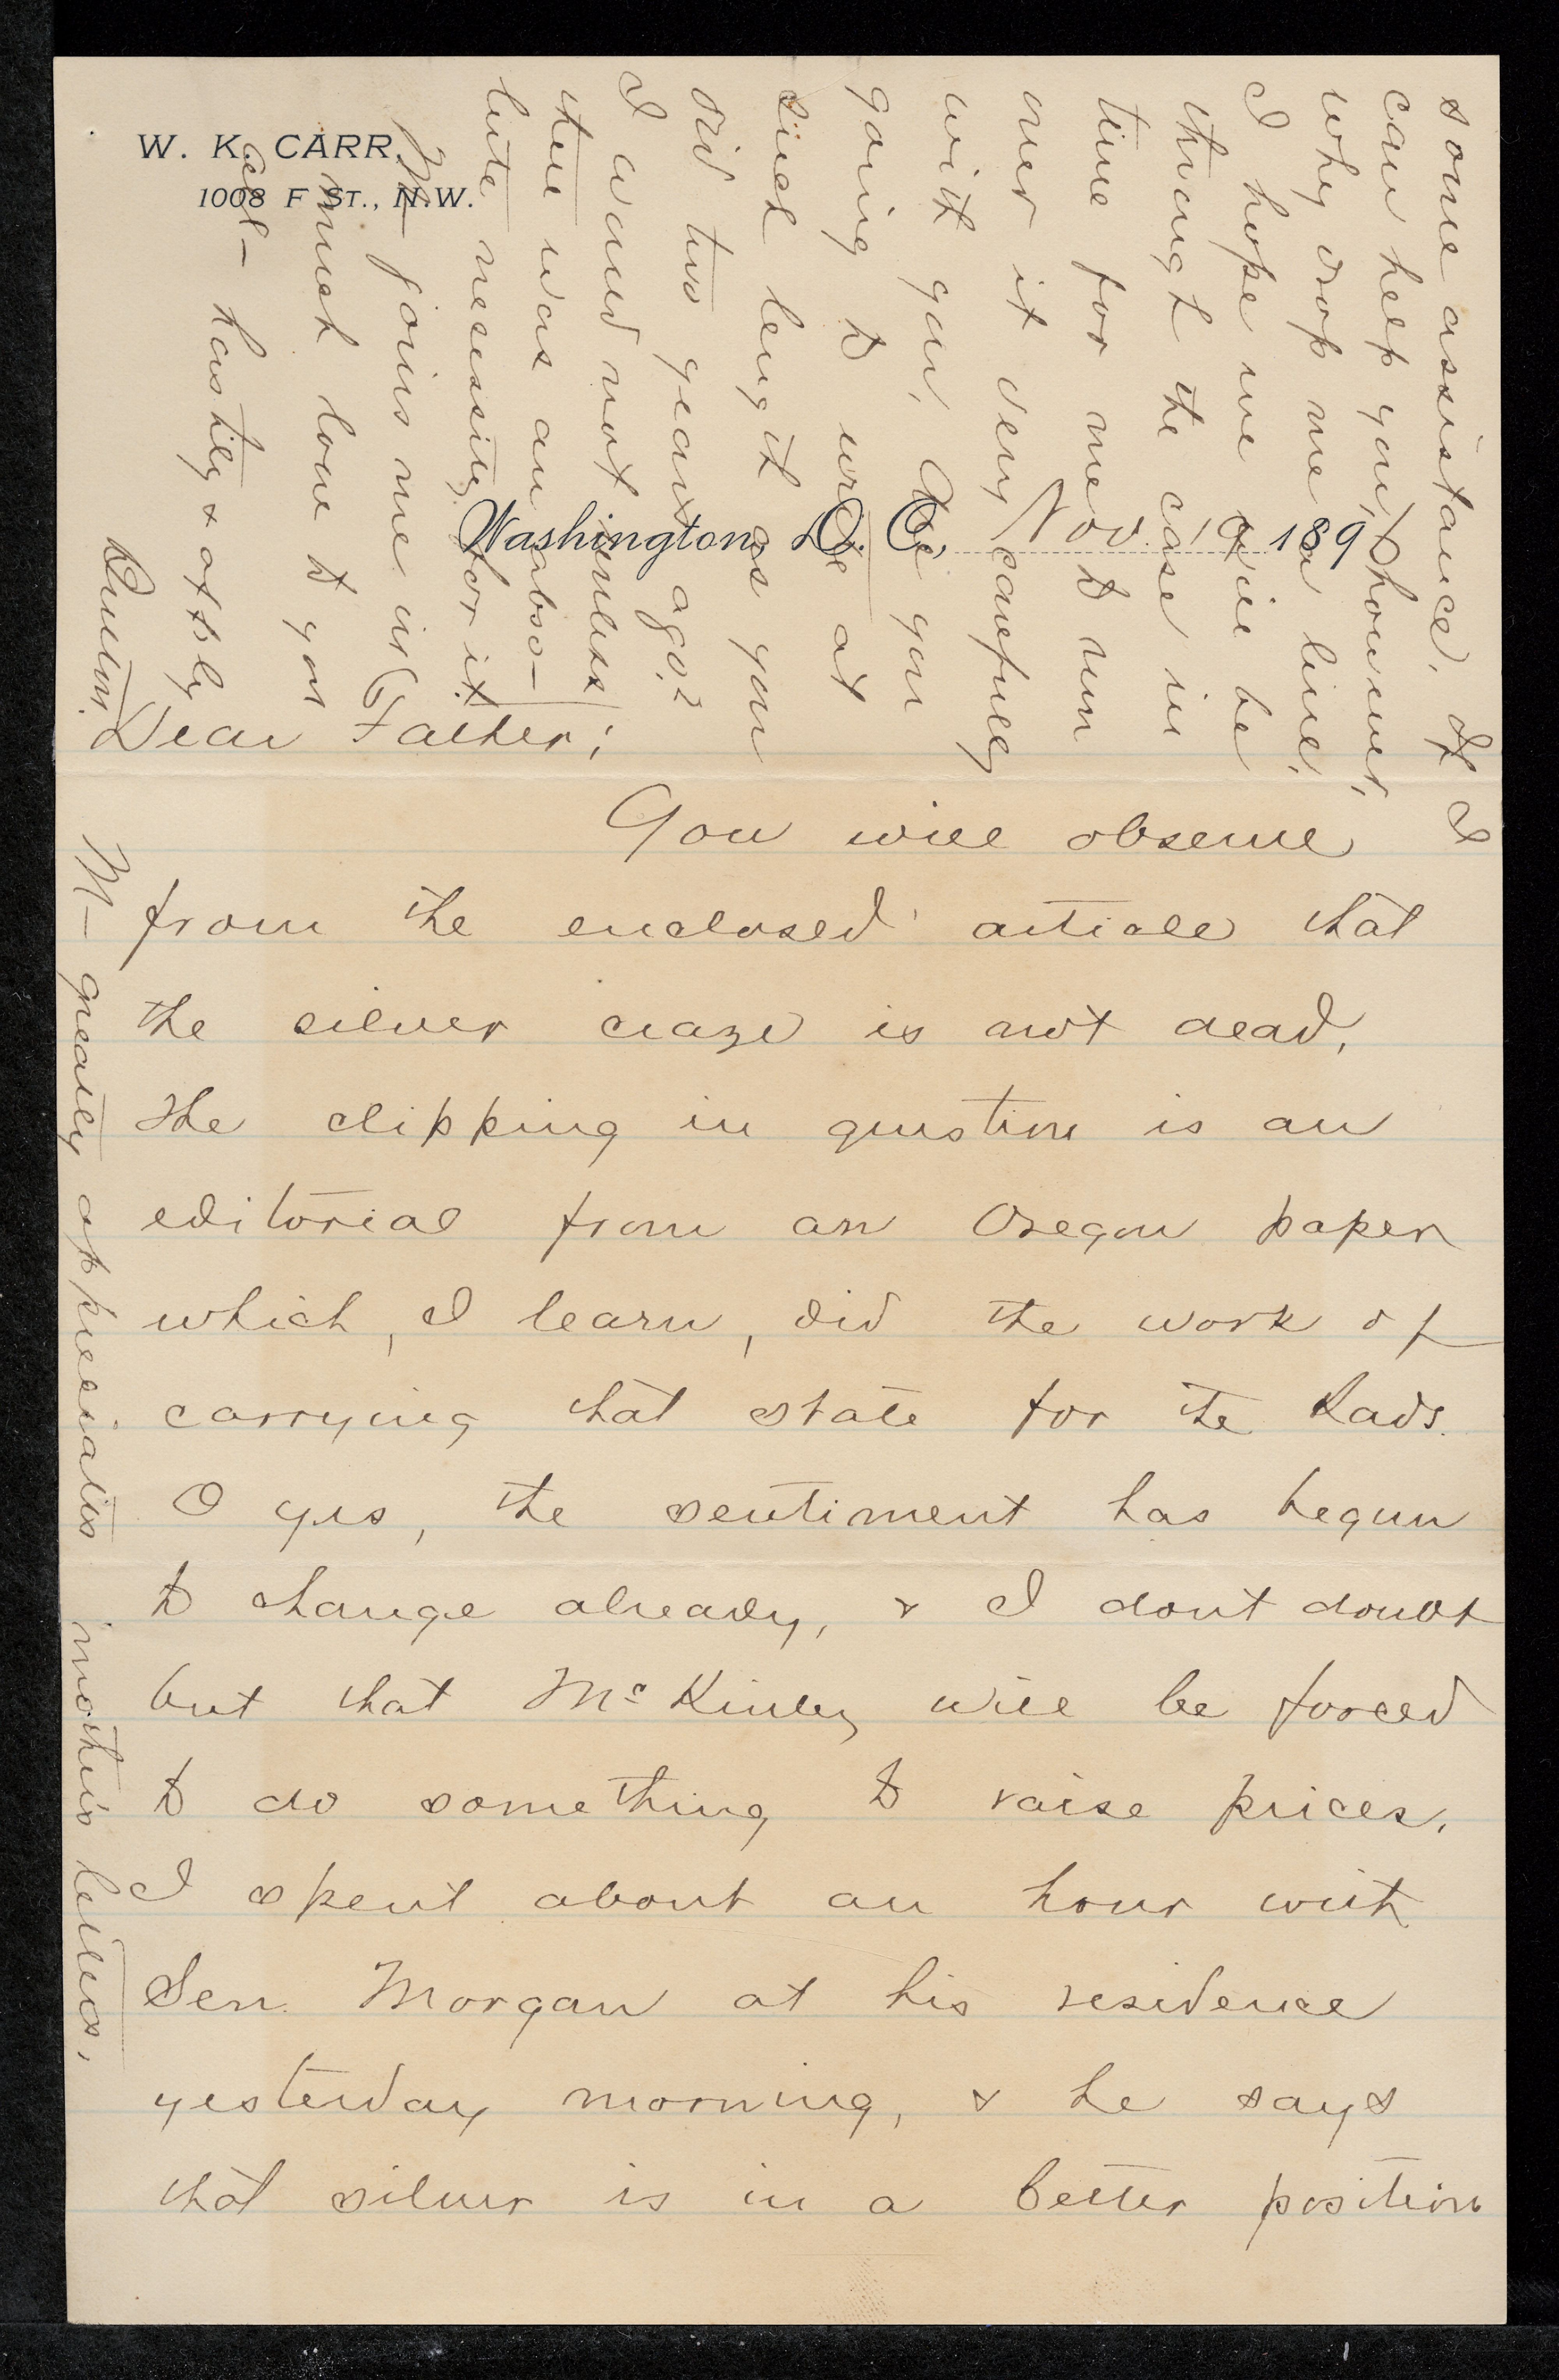 W. K. CARR,
1008 F ST., N.W.
Washington, D. C., Nov. 189
Dear Father;
You will observe
from the enclosed article that
the silver craze is not dead,
the clipping in question is an
editorial from an Oregon paper
which, I learn, did the work of
carrying that state for the Rads.
O yes, the sentiment has begun
to change already, & I dont doubt
but that McKinley will be forced
to do something to raise prices.
I spent about an hour with
Sen. Morgan at his residence
yesterday morning, & he says
that silver is in a better position
some assistance. If I
can help you, however,
why drop me a line.
I hope we will be
through the case in
time for me to run
over it very carefully
with you. Are you
going to write at
such length as you
did two years ago?
I would not unless
there was an abso-
lute necessity for it.
M— joins me in
much love to you
all— hastily & affly
M— greatly appreciates mother's letters.